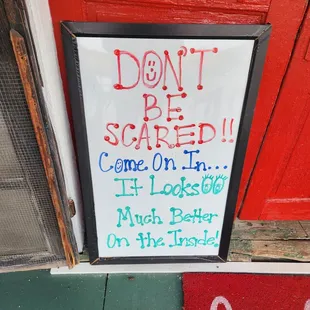 DON'T
BE
SCARED!!
Come On In...
It Looks
Much Better
On the Inside!